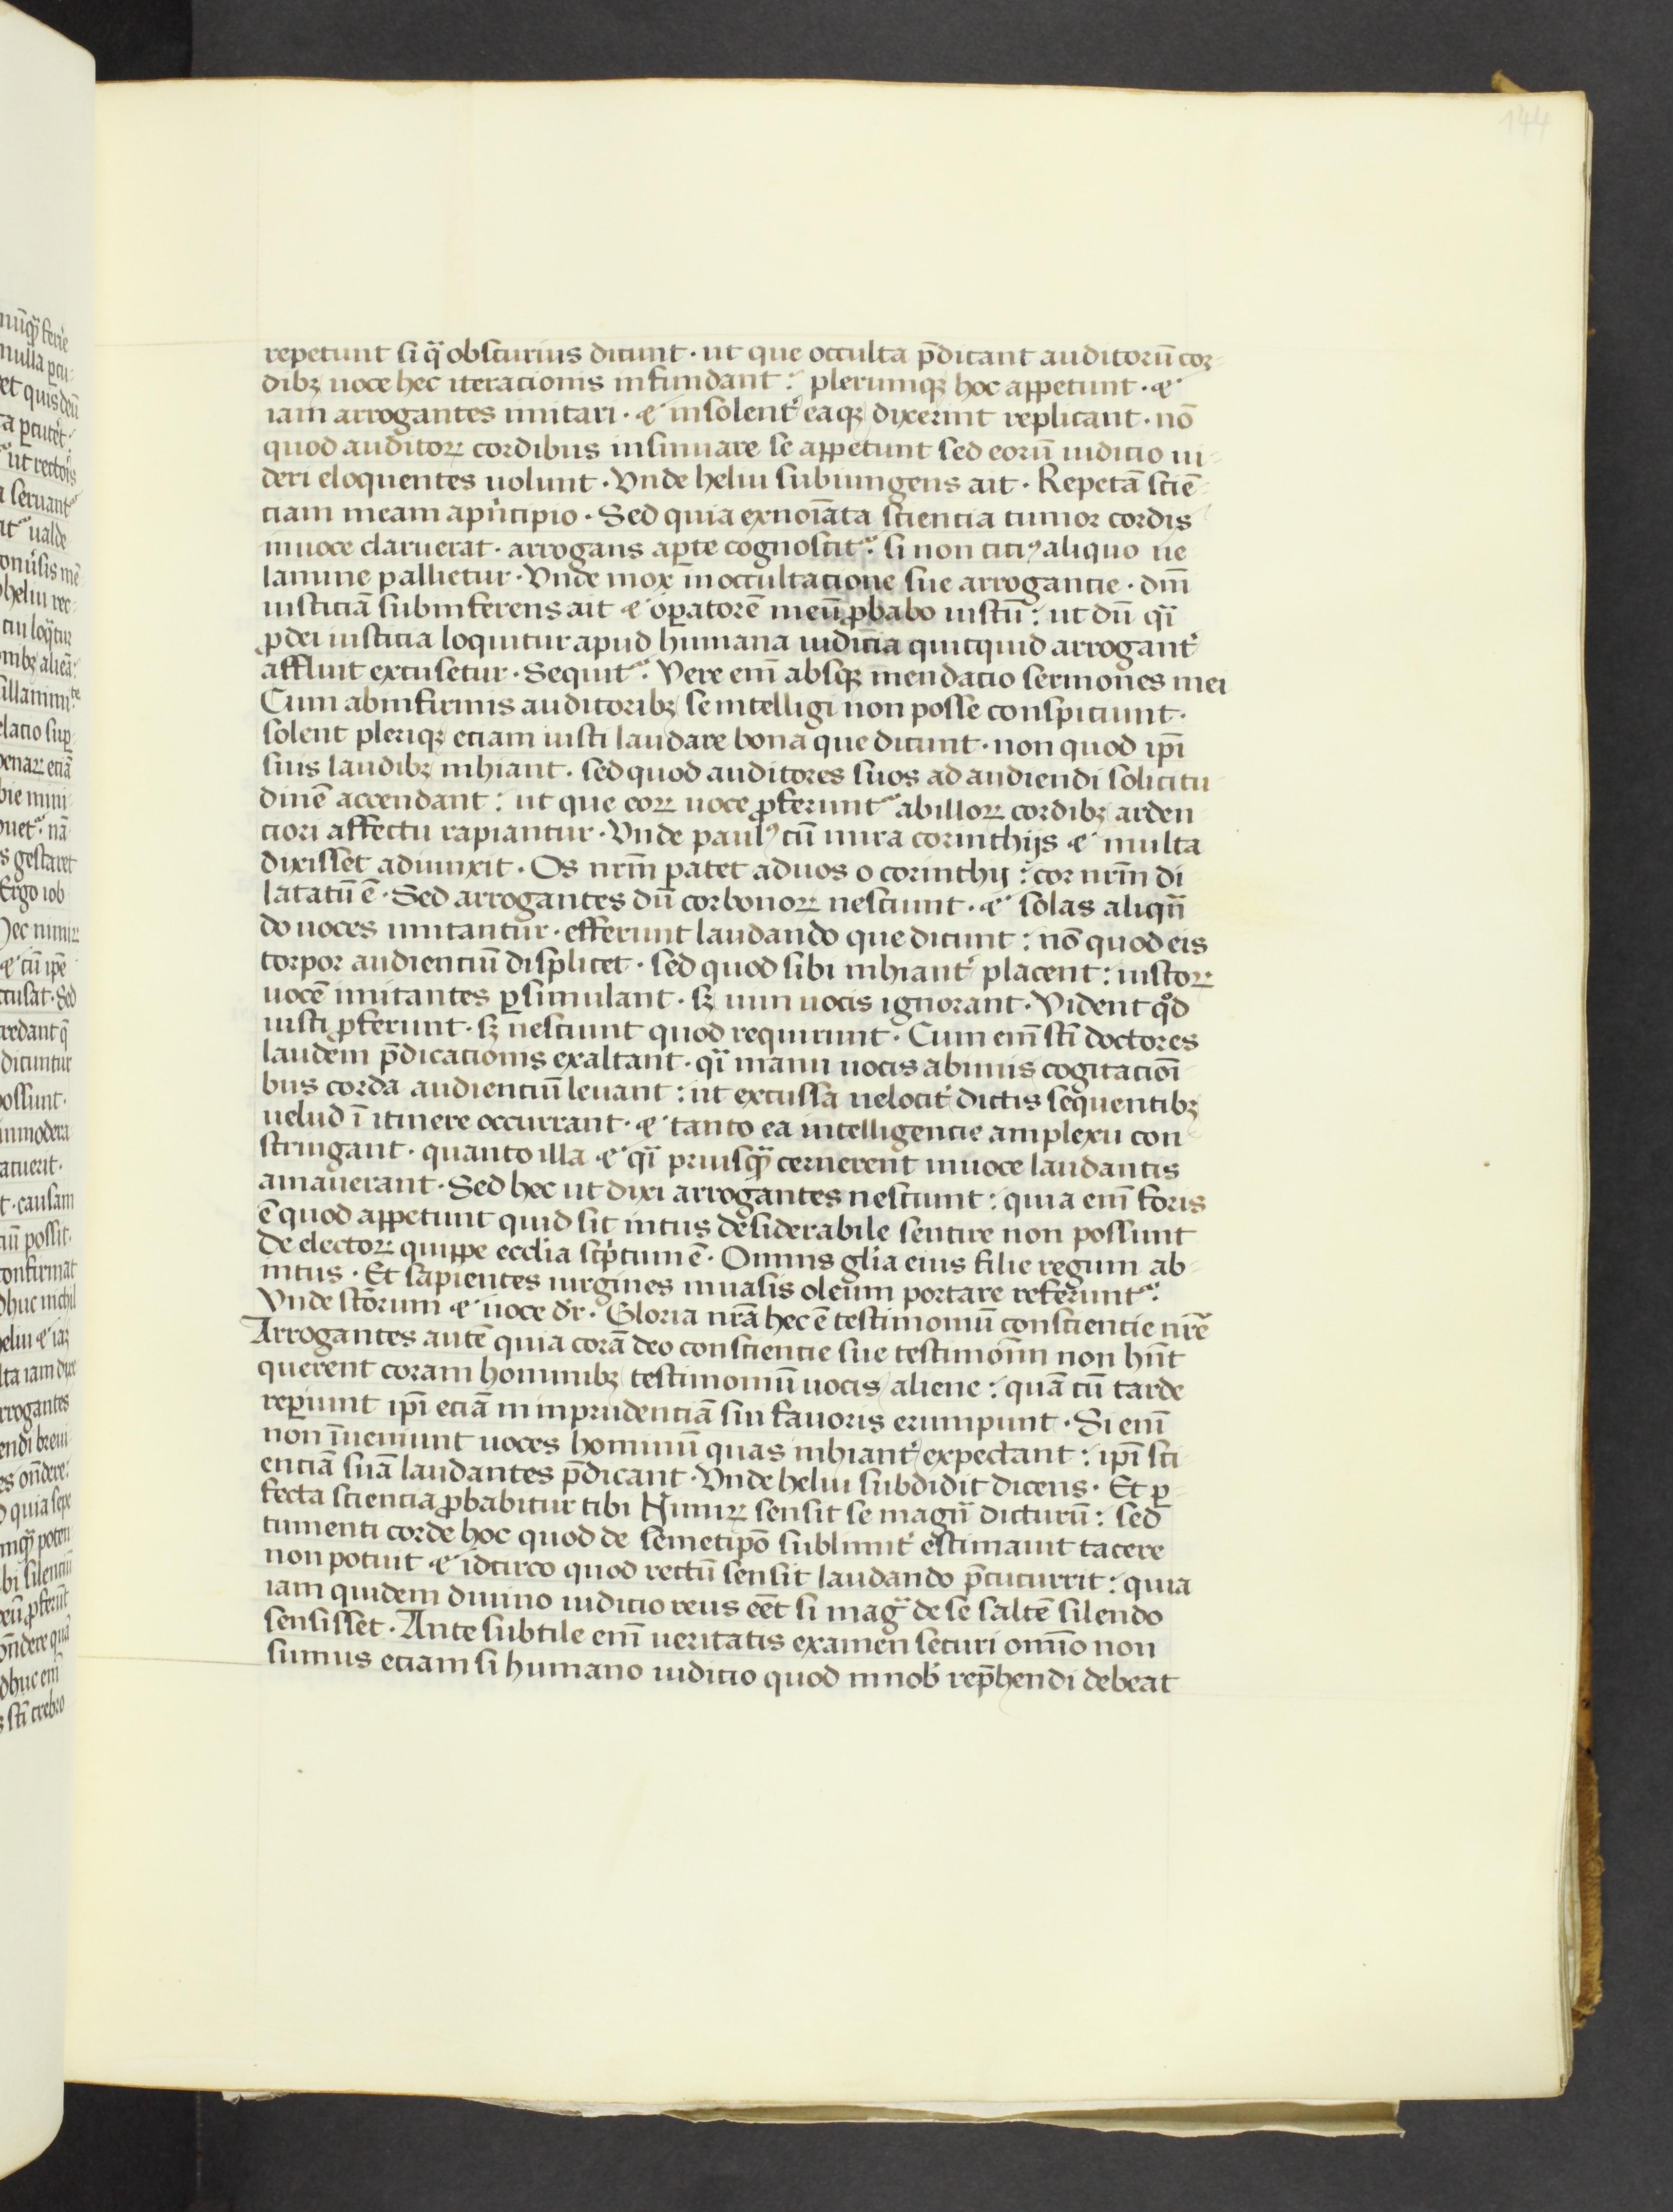 144
repetunt si qͣ obscurius dicunt · ut que occulta p̄dicant auditorū cor-
dibꝫ uoce hec iteracionis infundant : plerumqꝫ hoc appetunt · ⁊
iam arrogantes imitari · ⁊ insolent̓ eaqꝫ dixerint replicant · nō
quod auditoꝝ cordibus insinuare se appetunt sed eorū iudicio ui-
deri eloquentes uolunt · Vnde heliu subiungens ait · Repetā sciē-
ciam meam apͥncipio · Sed quia exnoīata sciencia tumor cordis
inuoce claruerat · arrogans aꝑte cognoscit᷑ · si non citiꝰ aliquo ue
lamine pallietur · Vnde mox in occultacione sue arrogancie · dn̄i
iusticiā subinferens ait ⁊ oꝑatorē meū ꝓbabo iustū : ut dū qͣi
ꝓ dei iusticia loquitur apud humana iudicia quicquid arrogant̓
affluit excusetur · Sequit᷑ · Vere enī absqꝫ mendacio sermones mei
Cum abinfirmis auditoribꝫ se intelligi non posse conspiciunt ·
solent pleriqꝫ eciam iusti laudare bona que dicunt · non quod ip̄i
suis laudibꝫ inhiant · sed quod auditores suos ad audiendi solicitu
dinē accendant : ut que eoꝝ uoce ꝓferunt᷑ abilloꝝ cordibꝫ arden
ciori affectu rapiantur · Vnde paulꝰ cū mira corinthijs ⁊ multa
dixisset adiunxit · Os nr̄m patet aduos o corinthij : cor nr̄m di
latatū ē · Sed arrogantes dū cor bonoꝝ nesciunt · ⁊ solas aliqͣn
do uoces imitantur · efferunt laudando que dicunt : nō quod eis
torpor audienciū displicet · sed quod sibi inhiant̓ placent : iustoꝝ
uocē imitantes ꝑsimulant · sꝫ uim uocis ignorant · Vident qͦd
iusti ꝓferunt · sꝫ nesciunt quod requirunt · Cum enī sc̄i doctores
laudem p̄dicacionis exaltant · qͣi manu uocis abimis cogitacioni-
bus corda audienciū leuant : ut excussa uelocit̓ dictis sequentibꝫ
uelud ī itinere occurrant · ⁊ tanto ea intelligencie amplexu con-
stringant · quanto illa ⁊ qͣi priusqͣ cernerent inuoce laudantis
amauerant · Sed hec ut dixi arrogantes nesciunt : quia enī foris
ē quod appetunt quid sit intus desiderabile sentire non possunt
de electoꝝ quippe ecclīa scͥptum ē · Omnis glīa eius filie regum ab-
intus · Et sapientes uirgines inuasis oleum portare referunt᷑ ·
Vnde sc̄orum ⁊ uoce dr̄ · Gloria nr̄a hec ē testimoniū consciencie nr̄e
Arrogantes autē quia corā deo consciencie sue testimoniū non hn̄t
querent coram hominibꝫ testimoniū uocis aliene : quā cū tarde
reꝑiunt ip̄i eciā in inprudenciā sui fauoris erumpunt · Si enī
non inueniunt uoces hominū quas inhiant̓ expectant : ip̄i sci-
enciā suā laudantes p̄dicant · Vnde heliu subdidit dicens · Et ꝑ-
fecta sciencia ꝓbabitur tibi Nimiꝝ sensit se magͣ dicturū : sed
tumenti corde hoc quod de semetip̄o sublimit̓ estimauit tacere
non potuit ⁊ idcirco quod rectū sensit laudando p̄cucurrit : quia
iam quidem diuino iudicio reus eēt si magͣ de se saltē silendo
sensisset · Ante subtile enī ueritatis examen securi omīo non
sumus eciam si humano iudicio quod in nob̓ rep̄hendi debeat